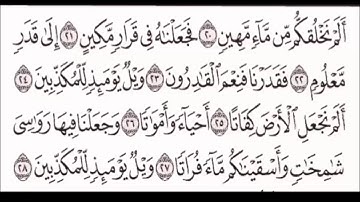 أَلَمْ نَخْلُقكُّم مِّن مَّآءٍ مَّهِينٍ ٢٠ فَجَعَلْنَٰهُ فِى قَرَارٍ مَّكِينٍ ٢١ إِلَىٰ قَدَرٍ
مَّعْلُومٍ ٢٢ فَقَدَرْنَا فَنِعْمَ ٱلْقَٰدِرُونَ ٢٣ وَيْلٌ يَوْمَئِذٍ لِّلْمُكَذِّبِينَ ٢٤
أَلَمْ نَجْعَلِ ٱلْأَرْضَ كِفَاتًا ٢٥ أَحْيَآءً وَأَمْوَٰتًا ٢٦ وَجَعَلْنَا فِيهَا رَوَٰسِىَ
شَٰمِخَٰتٍ وَأَسْقَيْنَٰكُم مَّآءً فُرَاتًا ٢٧ وَيْلٌ يَوْمَئِذٍ لِّلْمُكَذِّبِينَ ٢٨